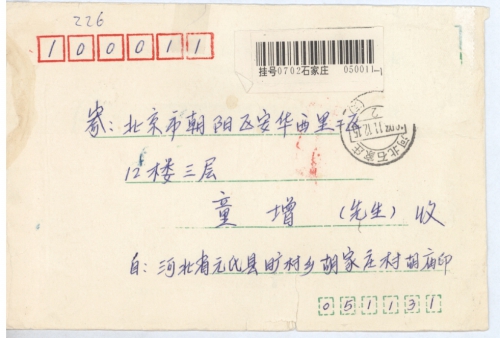 226
100011
挂号0702石家庄 050011-1
寄：北京市朝阳区安华西里一区
12楼三层
童增（先生）收
自：河北省元氏县旷村乡胡家庄村胡
051131